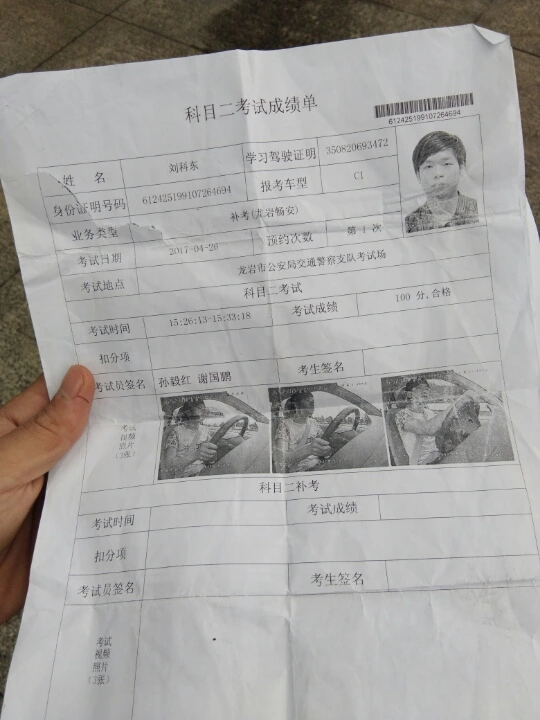 科目二考试成绩单
612425199107264694
姓 名 刘科东 学习驾驶证明 350820693472
身份证明号码 612425199107264694 报考车型 C1
业务类型 补考(龙岩畅安)
考试日期 2017-04-26 预约次数 第 1 次
考试地点 龙岩市公安局交通警察支队考试场
科目二考试
考试时间 15:26:13-15:33:18 考试成绩 100 分,合格
扣分项
考试员签名 孙毅红 谢国鹏 考生签名
考试
视频
照片
(3张)
科目二补考
考试时间 考试成绩
扣分项
考试员签名 考生签名
考试
视频
照片
(3张)